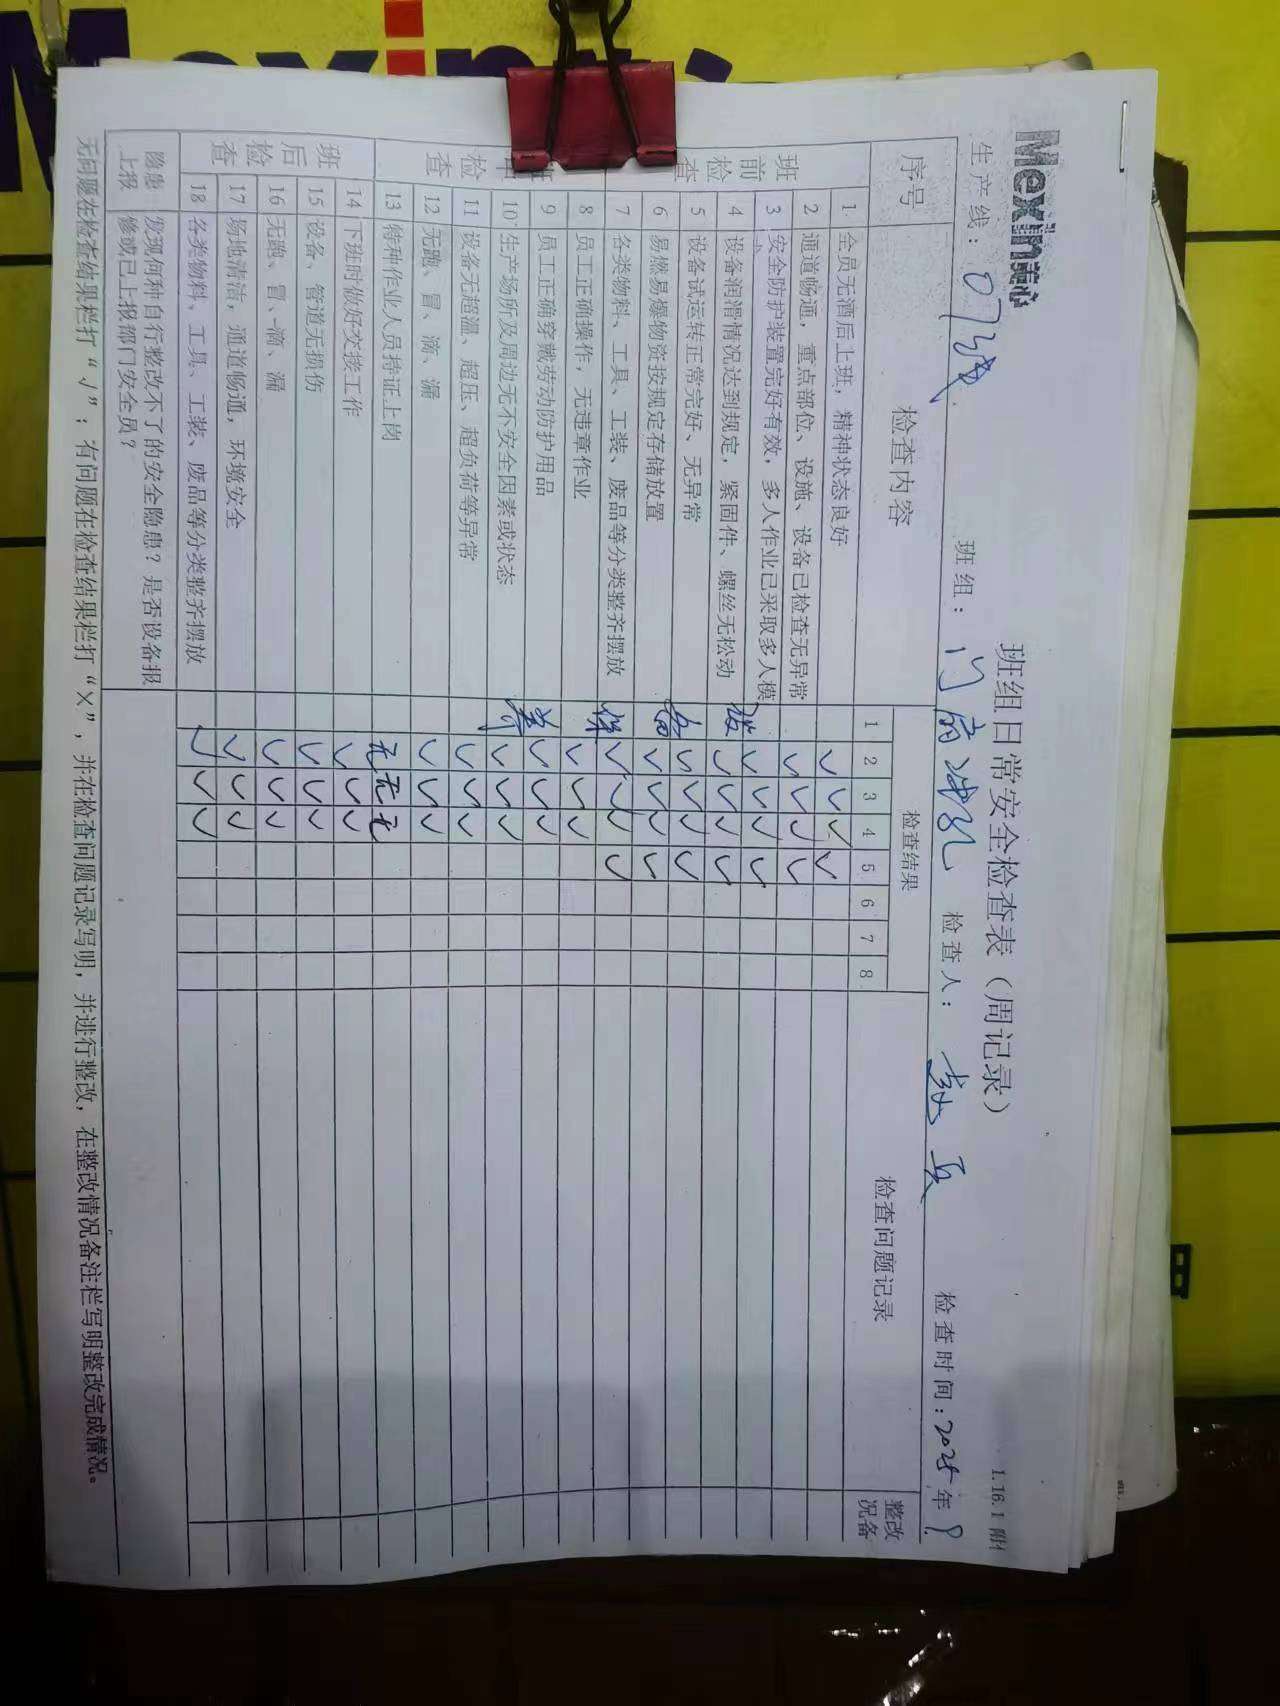 Mexin美心
1.16.1 附件
班组日常安全检查表（周记录）
生产线：07线 班组：门扇冲孔 检查人： 检查时间：2025年9
序号 检查内容 检查结果 检查问题记录 整改
况备
1 2 3 4 5 6 7 8
班前检查
1 全员无酒后上班，精神状态良好 √ √ √ √
2 通道畅通，重点部位、设施、设备已检查无异常 √ √ √ √
3 安全防护装置完好有效，多人作业已采取多人模 √ √ √ √
4 设备润滑情况达到规定，紧固件、螺丝无松动 设 √ √ √ √
5 设备试运转正常完好、无异常 √ √ √ √
6 易燃易爆物资按规定存储放置 备 √ √ √ √
7 各类物料、工具、工装、废品等分类整齐摆放 保 √ √ √ √
班中检查
8 员工正确操作，无违章作业 √ √ √
9 员工正确穿戴劳动防护用品 √ √ √
10 生产场所及周边无不安全因素或状态 养 √ √ √
11 设备无超温、超压、超负荷等异常 √ √ √
12 无跑、冒、滴、漏 √ √ √
13 特种作业人员持证上岗 无 无 无
班后检查
14 下班时做好交接工作 √ √ √
15 设备、管道无损伤 √ √ √
16 无跑、冒、滴、漏 √ √ √
17 场地清洁，通道畅通，环境安全 √ √ √
18 各类物料、工具、工装、废品等分类整齐摆放 √ √ √
隐患
上报
发现何种自行整改不了的安全隐患？是否设备报
修或已上报部门安全员？
无问题在检查结果栏打“√”；有问题在检查结果栏打“×”，并在检查问题记录写明，并进行整改，在整改情况备注栏写明整改完成情况。